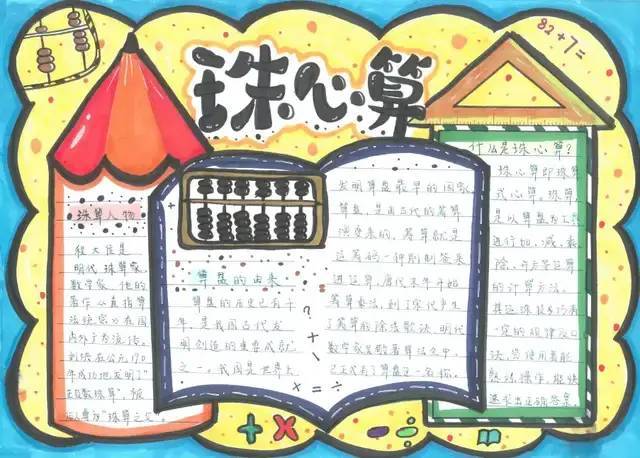 珠心算
82+7=
珠算人物
程大佳是
明代珠算家,
数学家,他的
著作《直指算
法统宗》在国
内外广为流传。
刘洪在公元190
年成功地发明了"
正负数珠算",
人尊为"珠算之父"。
算盘的由来
算盘的历史已有千
年,是我国古代发
明创造的重要成就
之一。我国是世界上
发明算盘最早的国家,
算盘,是由古代的筹算
演变来的,筹算就是
运筹码一种刚制签来
进运算,唐代末年开始
筹算乘法,到了宋代产生
了筹算的除法歌诀,明代
数学家吴敬著算法之中,
已正式有了算盘这一名称。
? + - × = ÷
什么是珠心算?
珠心算即珠算
式心算,珠算
是以算盘为工具
进行加、减、乘、
除、开方等运算
的计算方法。
其运珠技巧有
一定的规律及口
诀,
熟练操作,能快
速求出正确答案
+ × - ÷